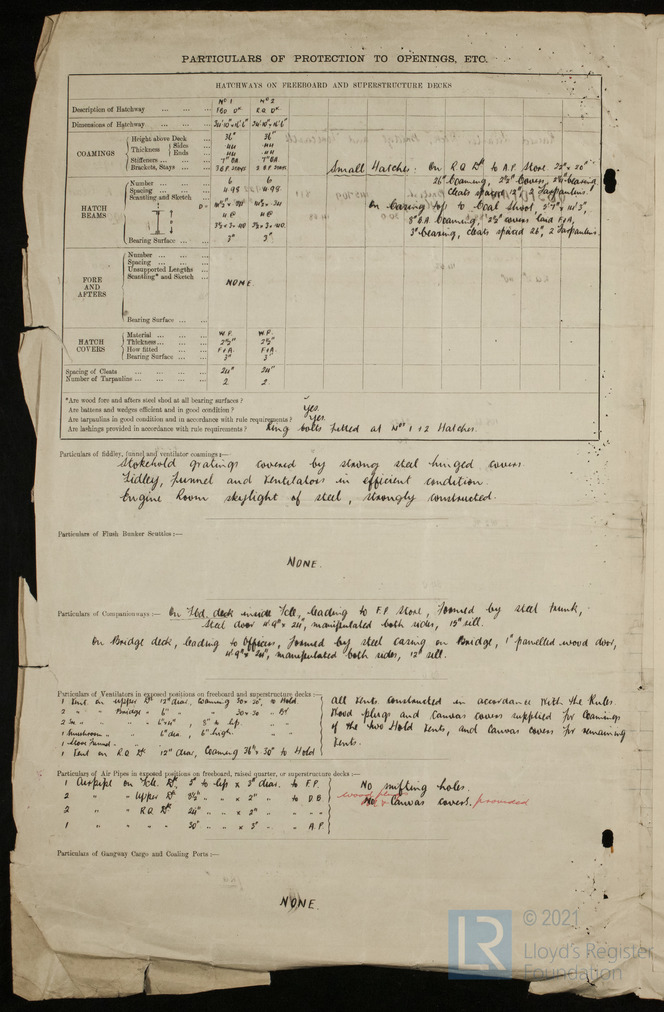 PARTICULARS OF PROTECTION TO OPENINGS, ETC.
HATCHWAYS ON FREEBOARD AND SUPERSTRUCTURE DECKS
Nº 1 Nº 2
Description of Hatchway ... ... ... FBD Dk R.Q. Dk
Dimensions of Hatchway ... ... ...
COAMINGS
Height above Deck ... 36" 36"
Thickness Sides ... .44 .44
Ends ... .44 .44
Stiffeners ... ... 7" B.A. 7" B.A.
Brackets, Stays ... ... 3 B.P. Stays 3 B.P. Stays
Small Hatches: On R.Q. Dk to A.P. Store. 22" x 20"
26" Coaming, 2½" Covers, 2¼" bearing,
cleats spaced 12", 2 Tarpaulins.
On Casing top to Coal Shoot, 5'7" x 4'3",
8" B.A. Coaming, 2½" covers laid F & A,
3" bearing, cleats spaced 26", 2 Tarpaulins.
HATCH BEAMS
Number ... ... ... 6 6
Spacing ... ... ... 4.98 4.98
Scantling and Sketch ...
Bearing Surface ... ... 3" 3"
FORE AND AFTERS
Number ... ... ...
Spacing ... ... ...
Unsupported Lengths ...
Scantling* and Sketch ...
NONE.
Bearing Surface ... ...
HATCH COVERS
Material ... ... ... W.P. W.P.
Thickness ... ... ... 2½" 2½"
How fitted ... ... F & A. F & A.
Bearing Surface ... ... 3" 3"
Spacing of Cleats ... ... ... 24" 24"
Number of Tarpaulins ... ... ... 2 2
*Are wood fore and afters steel shod at all bearing surfaces?
Are battens and wedges efficient and in good condition? Yes.
Are tarpaulins in good condition and in accordance with rule requirements? Yes.
Are lashings provided in accordance with rule requirements? Ring bolts fitted at Nos 1 & 2 Hatches.
Particulars of fiddley, funnel and ventilator coamings:—
Stokehold gratings covered by strong steel hinged covers
Fidley, Funnel and Ventilators in efficient condition.
Engine Room skylight of steel, strongly constructed.
Particulars of Flush Bunker Scuttles:—
NONE.
Particulars of Companionways:— On Fbd. deck inside Fcle, leading to F.P. Store, formed by steel trunk,
Steel door 4'9" x 24", manipulated both sides, 15" sill.
On Bridge deck, leading to Offices, formed by steel casing on Bridge, 1" panelled wood door,
4'9" x 24", manipulated both sides, 12" sill.
Particulars of Ventilators in exposed positions on freeboard and superstructure decks:—
1 Vent on Upper Dk 12" diar, Coaming 30 x 30, to Hold.
2 " " Bridge " 6" " " 30 x 30 " Br
2 " " 6" x 4", 3" to lip.
1 Mushroom " " 6" dia, 6" high.
1 Vent on R.Q. Dk. 12" diar, Coaming 36" x 30" to Hold
All Vents constructed in accordance with the Rules
Wood plugs and Canvas covers supplied for Coamings
of the two Hold Vents, and Canvas covers for remaining
Vents.
Particulars of Air Pipes in exposed positions on freeboard, raised quarter, or superstructure decks:—
1 Airpipe on Fcle. Dk, 3" to lip x 3" diar. to F.P.
2 " " Upper Dk 3½" " " x 2" " to D.B.
2 " " R.Q. Dk 24" " " x 2" " " "
1 " " " 30" " " x 3" " A.P.
No snifting holes.
wood plugs
No & Canvas covers. provided
Particulars of Gangway Cargo and Coaling Ports:—
NONE.
LR
© 2021
Lloyd's Register
Foundation